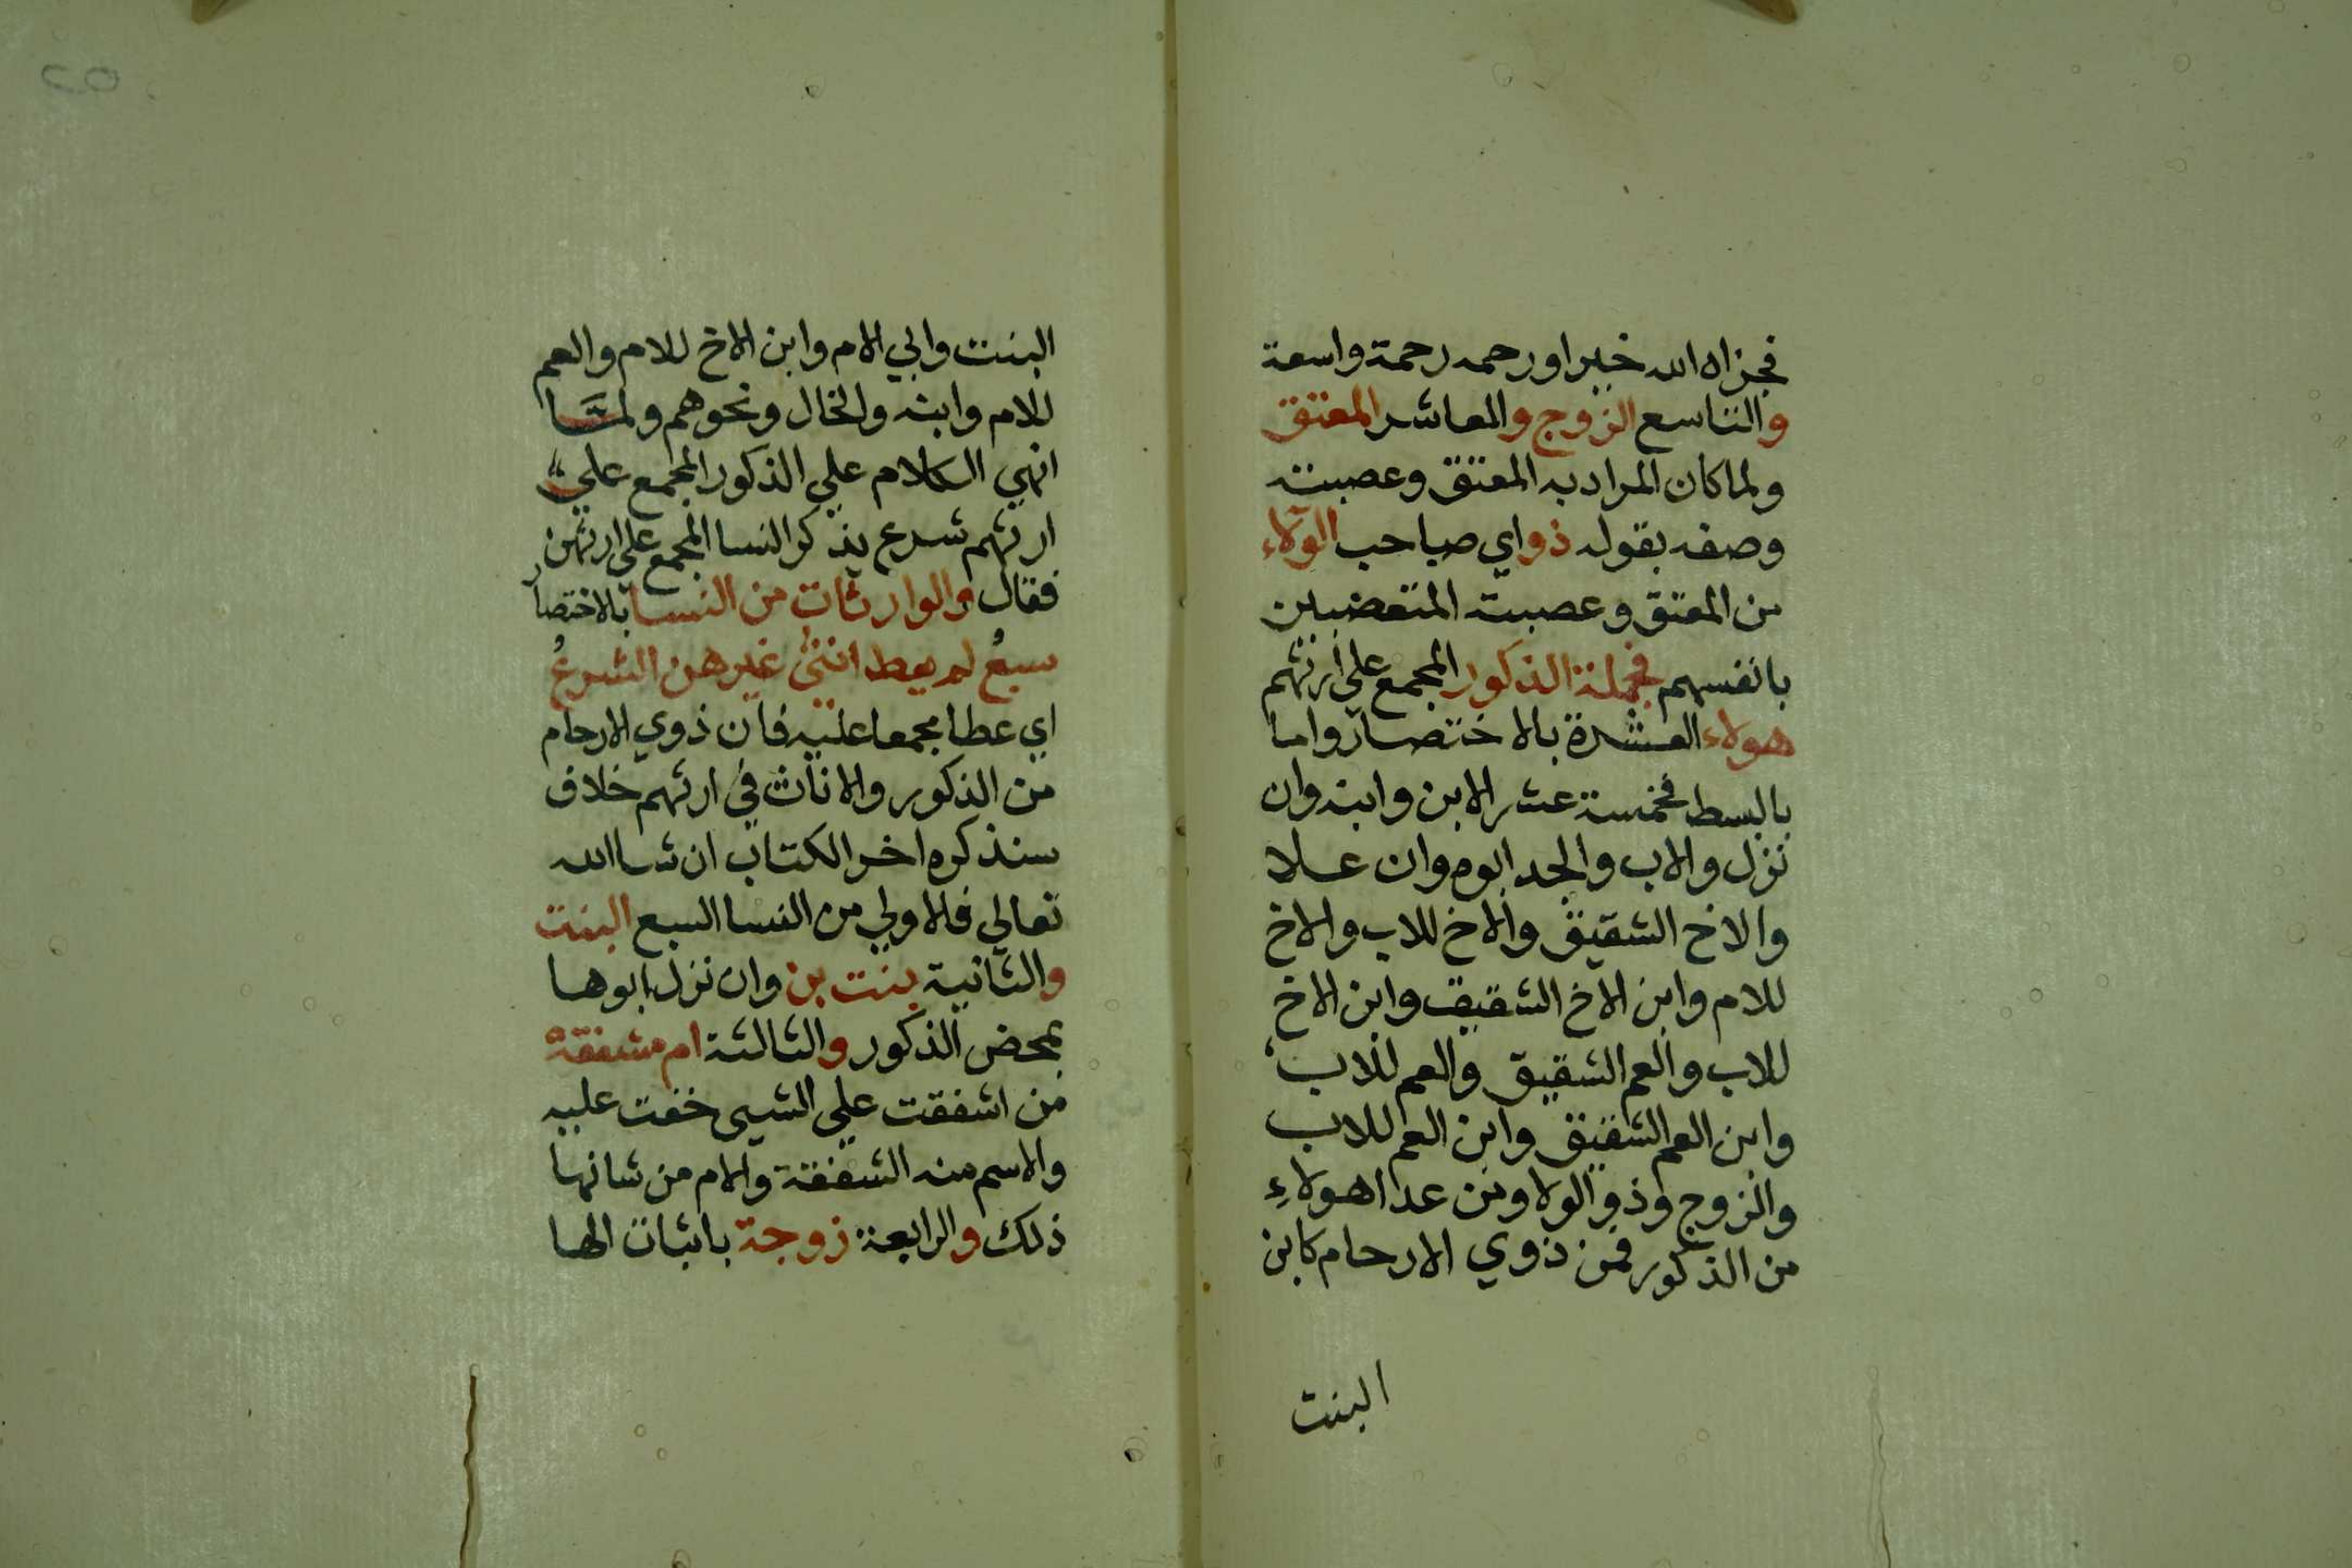 فجزاه الله خيرا ورحمه رحمة واسعة
والتاسع الزوج والعاشر المعتق
ولما كان المراد به المعتق وعصبته
وصفه بقوله ذو اي صاحب الولاء
من المعتق وعصبته المتعصبين
بانفسهم فجملة الذكور المجمع على ارثهم
هولاء العشرة بالاختصار واما
بالبسط فخمسة عشر الابن وابنه وان
نزل والاب والجد ابوه وان علا
والاخ الشقيق والاخ للاب والاخ
للام وابن الاخ الشقيق وابن الاخ
للاب والعم الشقيق والعم للاب
وابن العم الشقيق وابن العم للاب
والزوج وذو الولا ومن عدا هولاء
من الذكور فمن ذوي الارحام كابن
البنت
البنت وابي الام وابن الاخ للام والعم
للام وابنه والخال ونحوهم ولما
انهي الكلام علي الذكور المجمع علي
ارثهم شرع يذكر النسا المجمع على ارثهن
فقال والوارثات من النسا بالاختصار
سبع لم يعط انثى غيرهن الشرع
اي عطا مجمعا عليه فان ذوي الارحام
من الذكور والاناث في ارثهم خلاف
سنذكره اخر الكتاب ان شا الله
تعالي فالاولي من النسا السبع البنت
والثانية بنت بن وان نزل ابوها
بمحض الذكور والثالثة ام مشفقة
من اشفقت علي الشيى خفت عليه
والاسم منه الشفقة والام من شانها
ذلك والرابعة زوجة باثبات الها